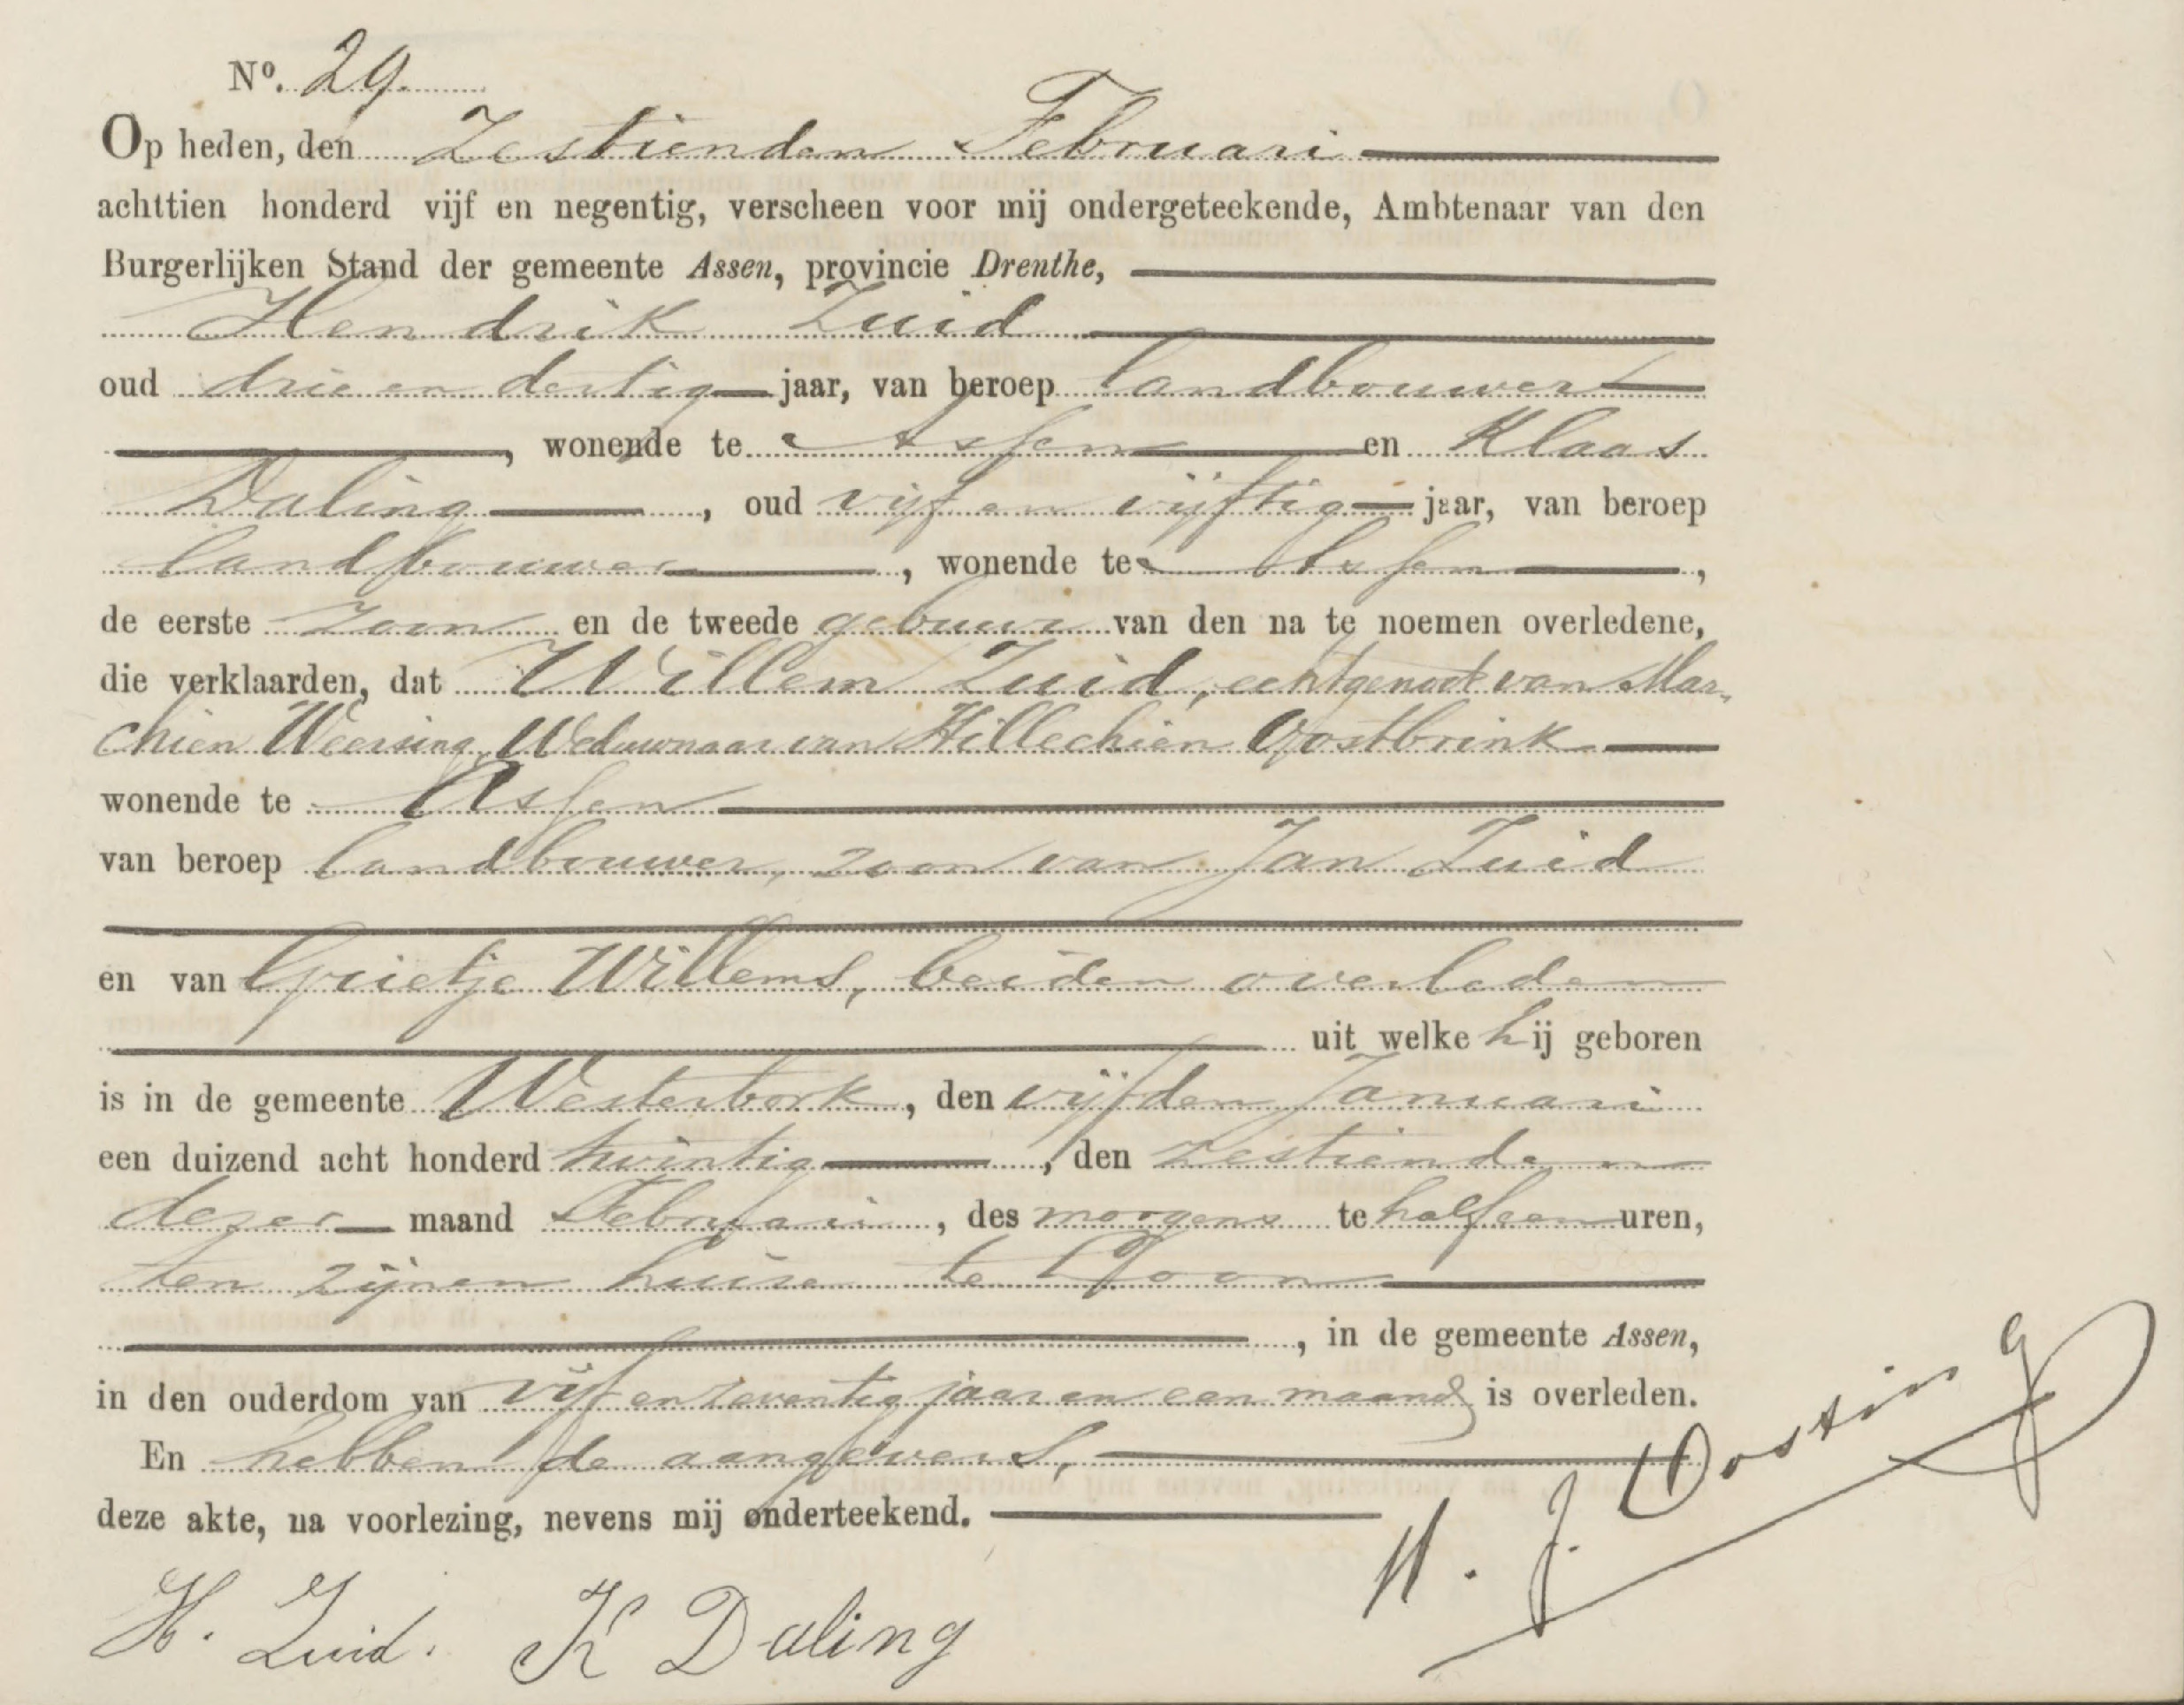 Nº. 29.
Op heden, den Zestienden Februari
achttien honderd vijf en negentig, verscheen voor mij ondergeteekende, Ambtenaar van den
Burgerlijken Stand der gemeente Assen, provincie Drenthe,
Hendrik Zuid
oud drie en dertig jaar, van beroep landbouwer
, wonende te Assen en Klaas
Daling , oud vijf en vijftig jaar, van beroep
landbouwer , wonende te Assen ,
de eerste zoon en de tweede gebuur van den na te noemen overledene,
die verklaarden, dat Willem Zuid, echtgenoot van Mar-
chien Weersing, Weduwnaar van Hillechien Oostbrink
wonende te Assen
van beroep landbouwer, zoon van Jan Zuid
en van Grietje Willems, beiden overleden
uit welke hij geboren
is in de gemeente Westerbork, den vijfden Januari
een duizend acht honderd twintig , den zestienden
dezer maand Februari, des morgens te half een uren,
ten zijnen huize te Loon
, in de gemeente Assen,
in den ouderdom van vijf en zeventig jaar en een maand is overleden.
En hebben de aangevers,
deze akte, na voorlezing, nevens mij onderteekend.
H. J. Oosting
H. Zuid. K Daling